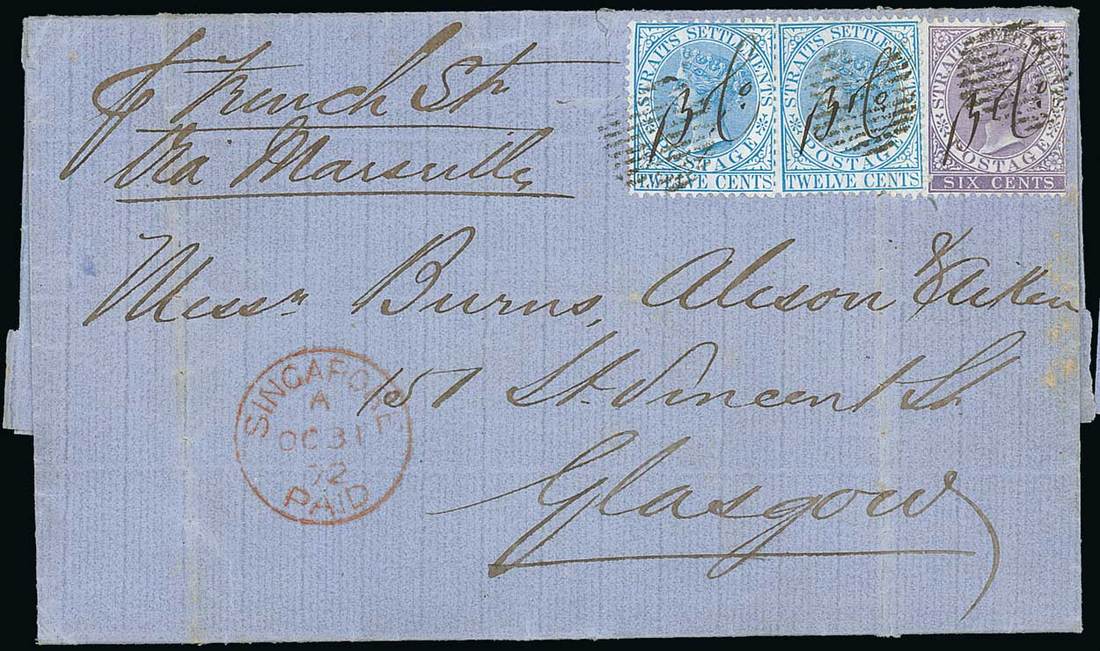 p French Str
Via Marseille
STRAITS SETTLEMENTS
POSTAGE
TWELVE CENTS
STRAITS SETTLEMENTS
POSTAGE
TWELVE CENTS
STRAITS SETTLEMENTS
POSTAGE
SIX CENTS
Messrs Burns, Alison & Aitken
157 St. Vincent St.
Glasgow
SINGAPORE
A
OC 31
72
PAID